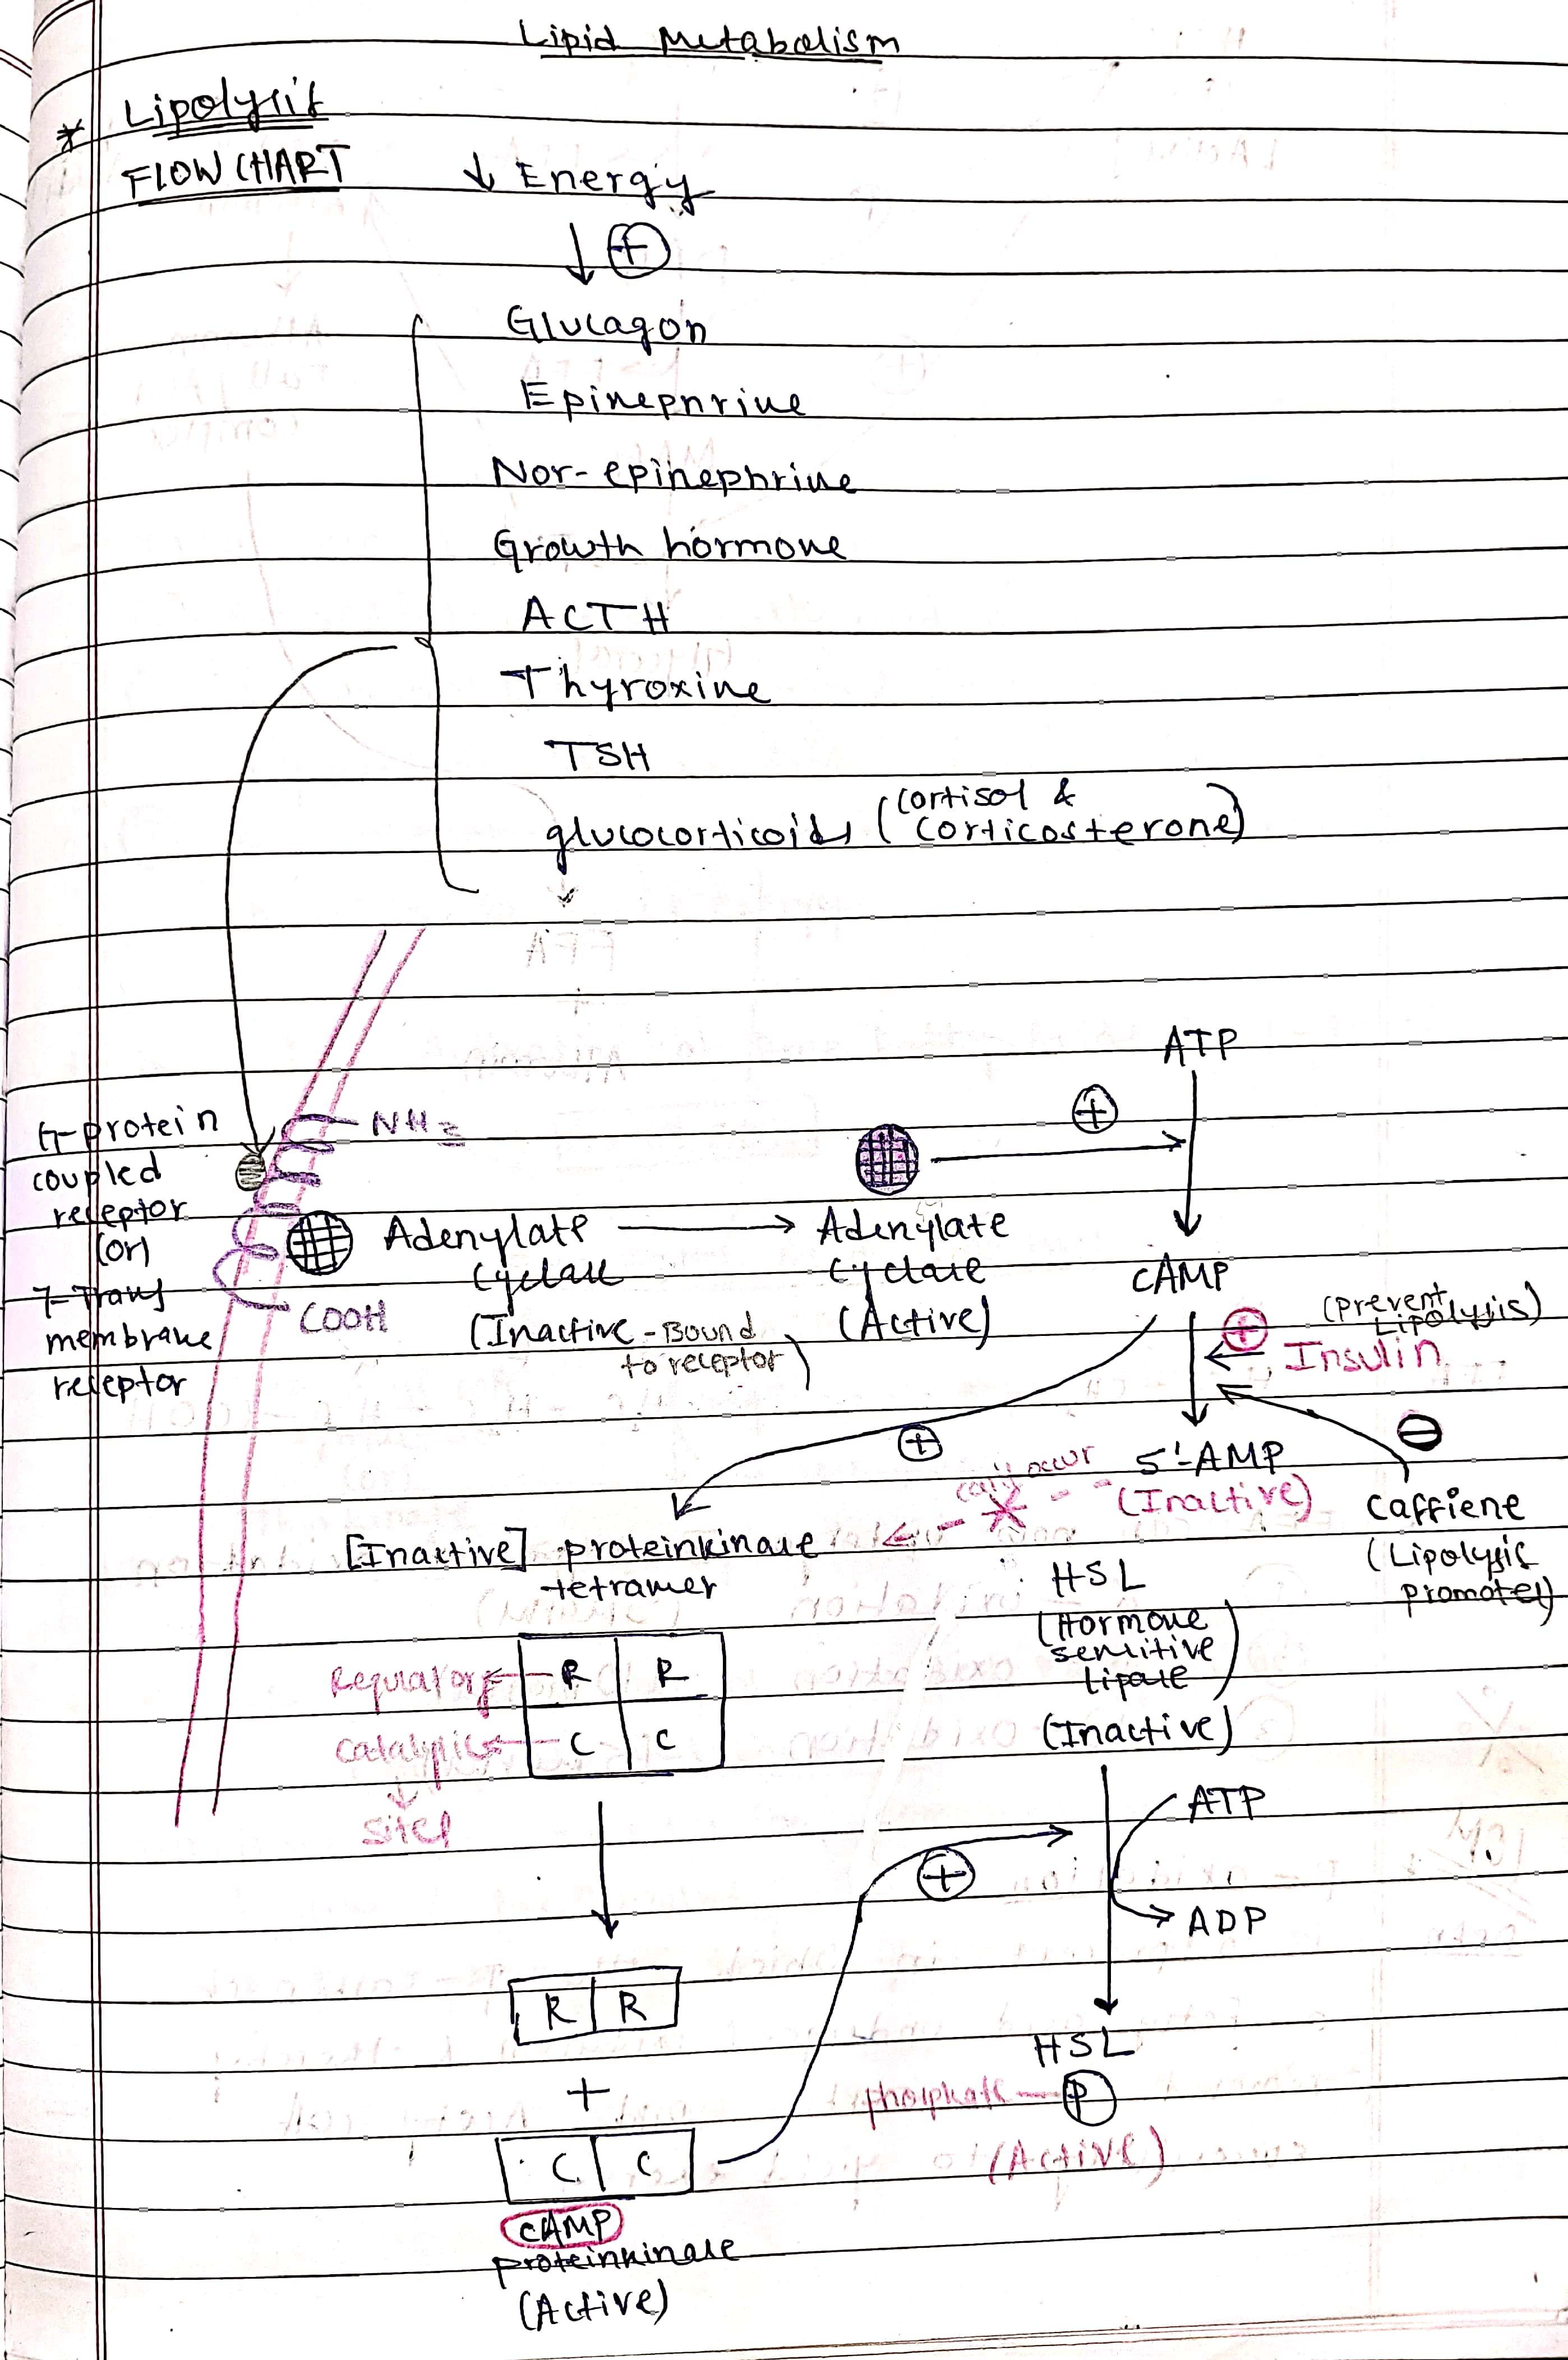 Lipid Metabolism
* Lipolysis
FLOW CHART
↓ Energy
↓ (+)
Glucagon
Epinephrine
Nor-epinephrine
Growth hormone
ACTH
Thyroxine
TSH
glucocorticoids (cortisol &
corticosterone)
ATP
(+)
G-protein
coupled
receptor
(or)
7-Trans
membrane
receptor
NH2
COOH
Adenylate
cyclase
(Inactive - Bound
to receptor)
Adenylate
cyclase
(Active)
cAMP
(prevent
Lipolysis)
(+) Insulin
(+)
5'-AMP
(Inactive)
can't occur
⊖
caffiene
(Lipolysis
promoter)
[Inactive] proteinkinase
tetramer
Regulatory R R
Catalytic C C
sites
HSL
(Hormone
sensitive
lipase)
(Inactive)
ATP
(+)
ADP
R R
+
C C
cAMP
proteinkinase
(Active)
HSL
phosphate - P
(Active)